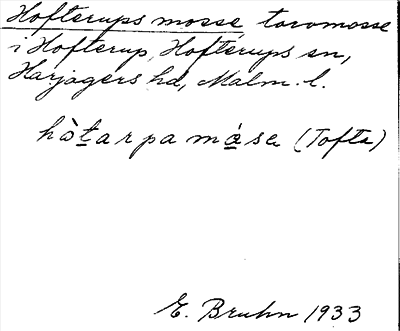 Hofterups mosse torvmosse
i Hofterup, Hofterups sn,
Harjagers hd, Malm. l.
hòtarpa måsa (Tofta)
E. Bruhn 1933